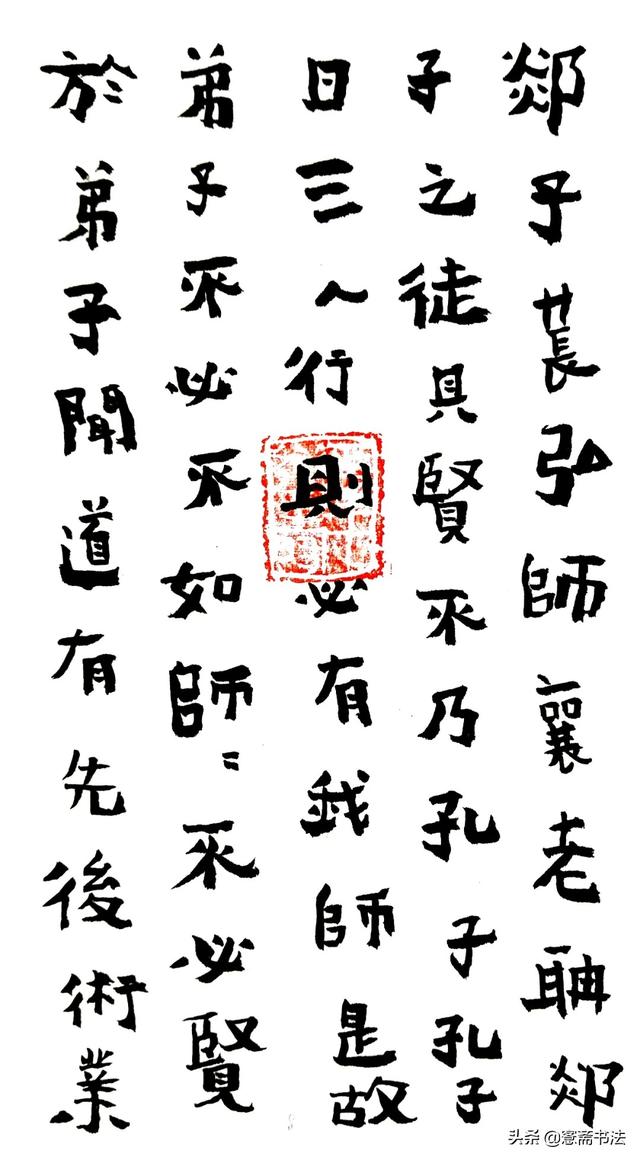 郯子萇弘師襄老聃郯
子之徒其賢不及孔子孔子
曰三人行則必有我師是故
弟子不必不如師〻不必賢
於弟子聞道有先後術業
头条 @愙斋书法